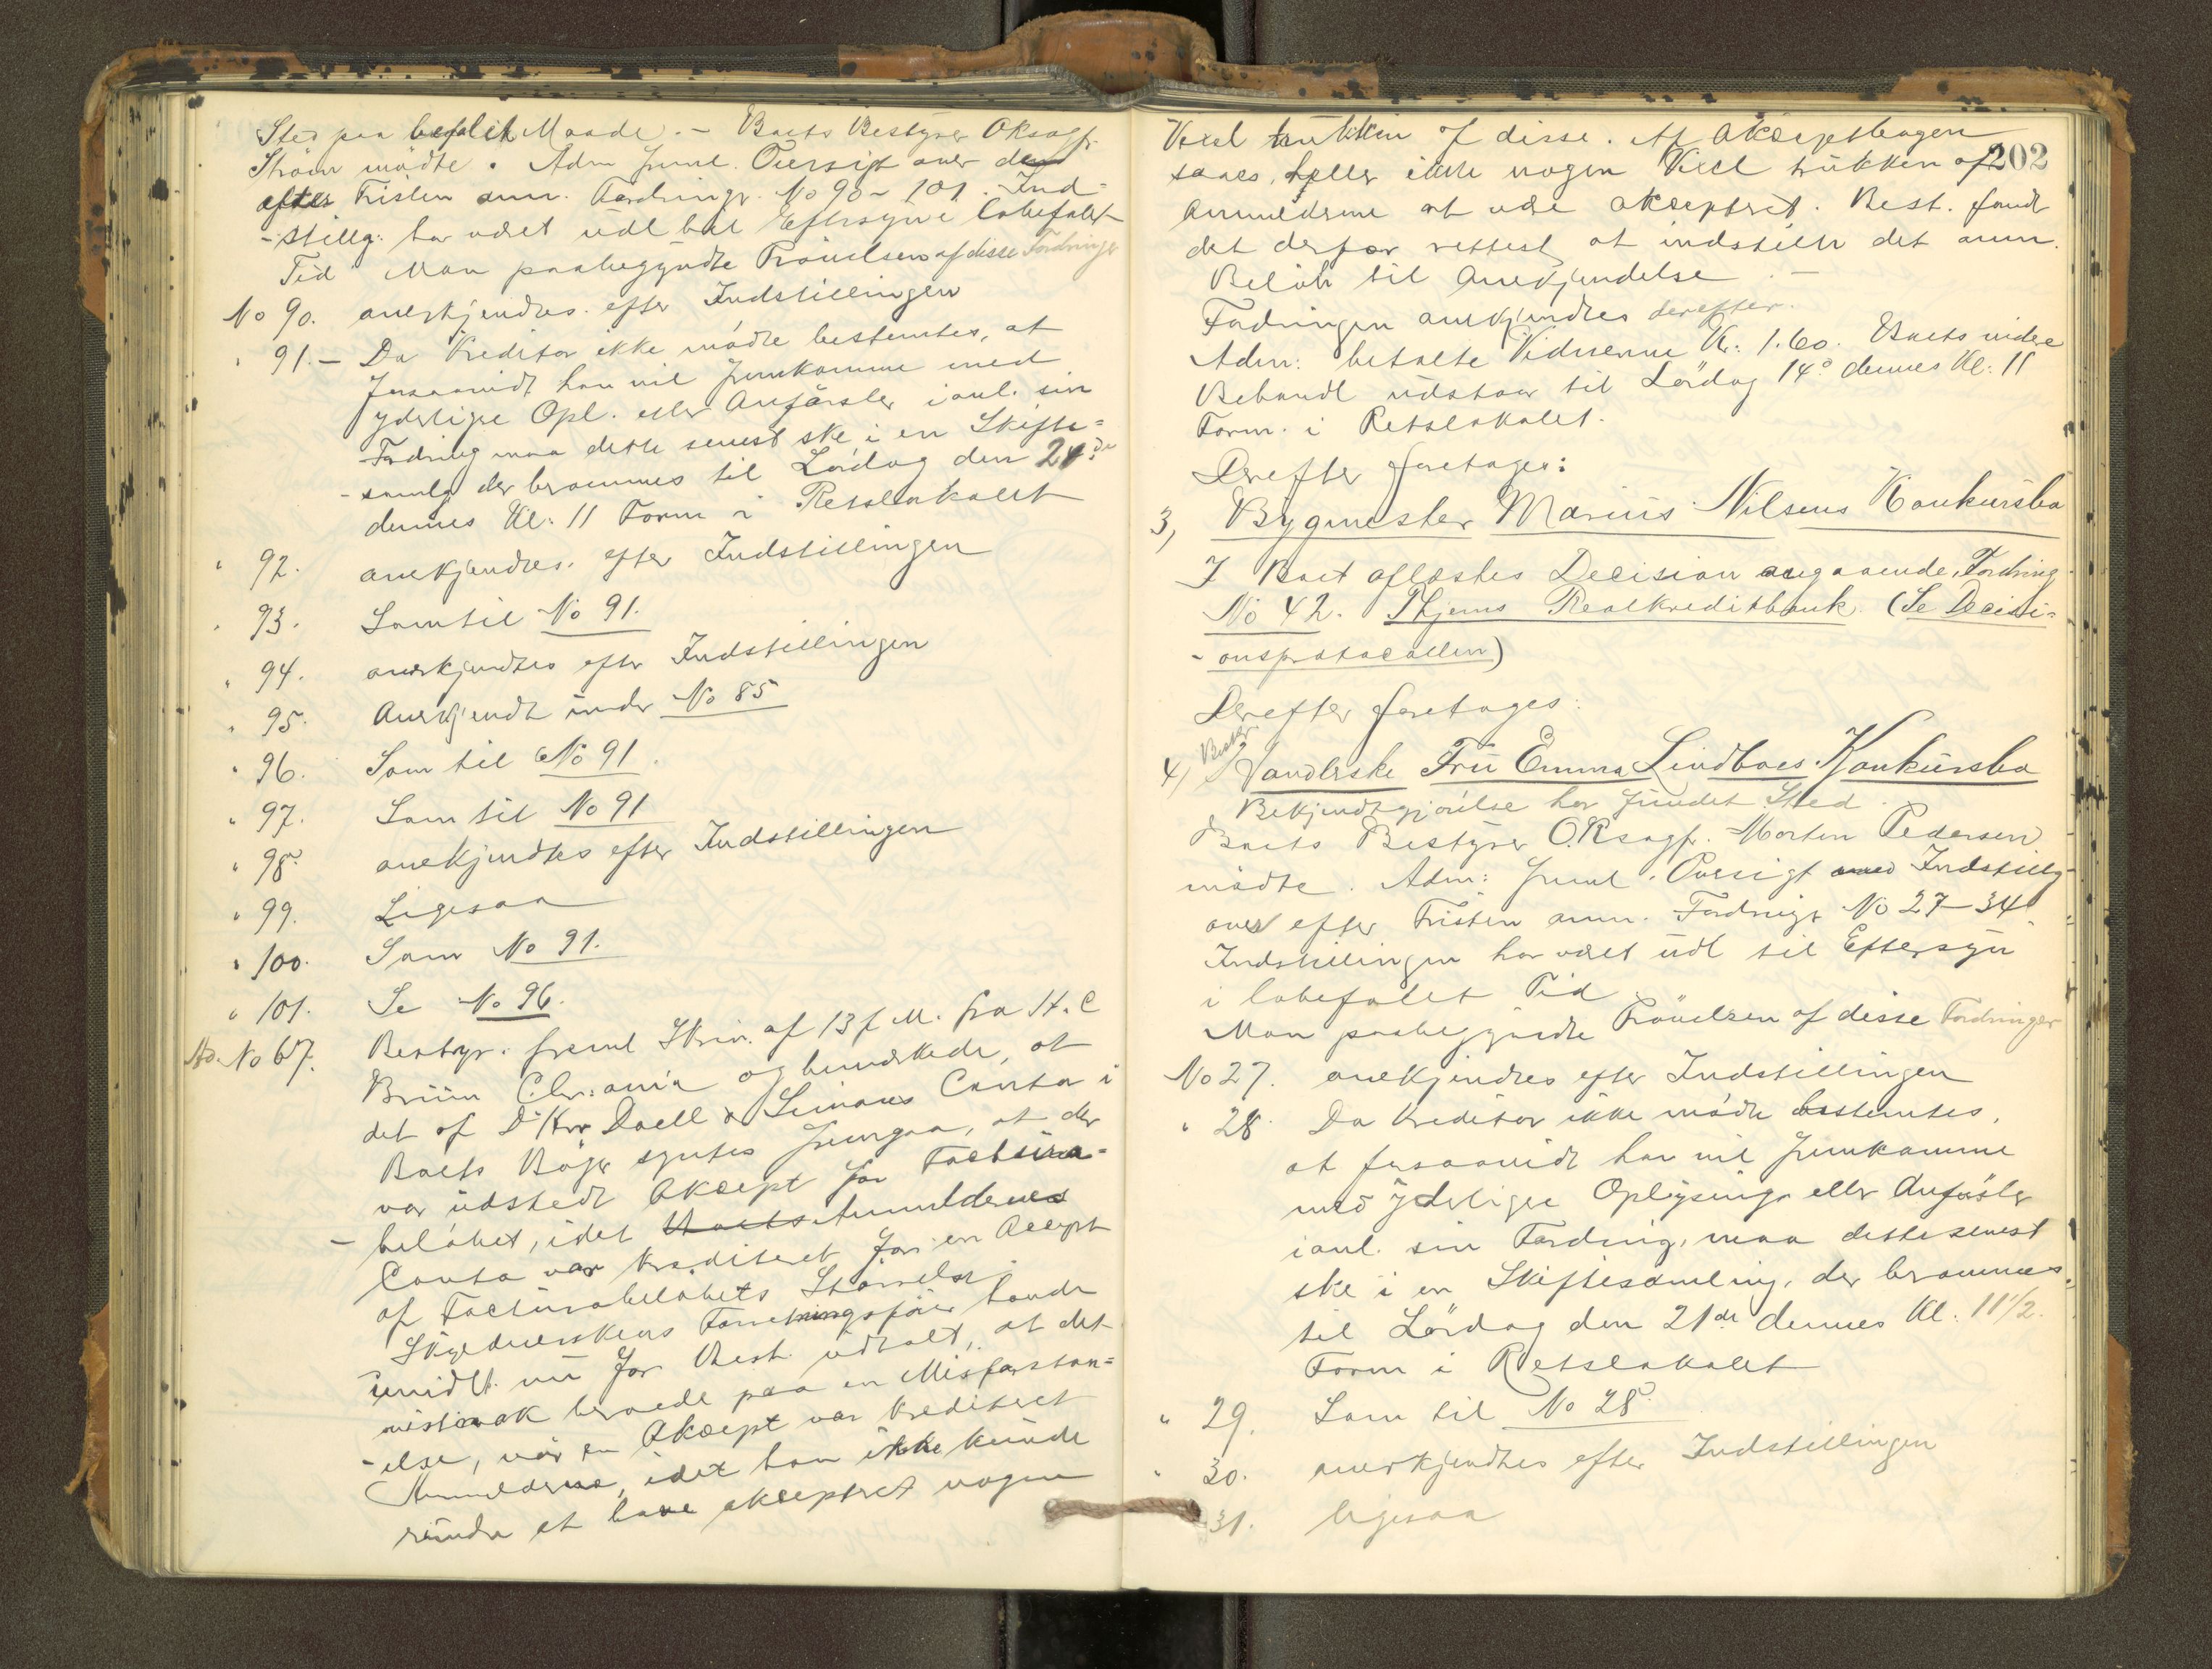 Sted paa befalet Maade. - Boets Bestyrer ORsagf.
Ström mödte. Adm freml. Oversigt over de
efter Fristen anm. Fordringr. No 90 - 101. Ind-
-stillg. har været udl til Eftersyn i lobefalet
Tid Man paabegyndte Prövelsen af disse Fordringer
No 90. anerkjendtes. efter Indstillingen
" 91. - Da Kreditor ikke mödte bestemtes, at
forsaavidt han vil fremkomme med
yderlige Opl. eller Anförsler i anl. sin
Fordring maa dette senest ske i en Skifte=
-samlg der berammes til Lördag den 21de
dennes Kl: 11 Form i Retslokalet
" 92. anerkjendtes. efter Indstillingen
" 93. Som til No 91.
" 94. anerkjendtes efter Indstillingen
" 95. Anerkjendt under No 85
" 96. Som til No 91.
" 97. Som til No 91
" 98. anerkjendtes efter Indstillingen
" 99. Ligesaa
" 100. Som No 91.
" 101. Se No 96.
Ad. No 67. Bestyr. freml Skriv. af 13 f. M. fra H. C
Bruun Chr:ania og bemærkede, at
det af D'Hrr Doell & Simons Conto i
Boets Böger syntes fremgaa, at der
var udstedt Aksept for Factura=
- belöbet, idet Boets Anmeldernes
Conto var krediteret for en Accept
af Facturabelöbets Störrelse.
Skyldnerskens Forretningsförer havde
imidlt. nu for Best. udtalt, at det
nistnok beroede paa en Misforstaa=
-else, naar en Aksept var krediteret
Anmelderne, idet han ikke kunde
mindes at have aksepteret nogen
202
Vexel trukken af disse. Af Akseptbogen
saaes heller ikke nogen Vexel trukken af
Anmelderne at være aksepteret. Best. fandt
det derfor rettest at indstille det anm.
Belöb til Anerkjendelse. -
Fordringen anerkjendtes derefter.
Adm: betalte Vidnerne Kr. 1.60. Boets videre
Behandl udstaar til Lördag 14de dennes Kl: 11
Form. i Retslokalet.
Derefter foretages:
3, Bygmester Marius Nilsens Konkursbo
I Boet aflæstes Decision angaaende Fordring
No 42. Thjems Realkreditbank. (Se Decisi=
- onsprotocollen)
Derefter foretages:
4, Handlerske Fru Emma Lindboes Konkursbo
Bekjendtgjörelse har fundet Sted.
Boets Bestyrer ORsagf. Morten Pedersen
mödte. Adm: freml. Oversigt med Indstillg
over efter Fristen anm. Fordringr No 27-34
Indstillingen har været udl til Eftersyn
i lobefalet Tid
Man paabegyndte Prövelsen af disse Fordringer
No 27. anerkjendtes efter Indstillingen
" 28. Da Kreditor ikke mödte bestemtes,
at forsaavidt han vil fremkomme
med yderligere Oplysningr eller Anförsler
i anl. sin Fordring, maa dette senest
ske i en Skiftesamling, der berammes
til Lördag den 21de dennes Kl. 11 1/2.
Form i Retslokalet
" 29. Som til No 28.
" 30. anerkjendtes efter Indstillingen
31. ligesaa